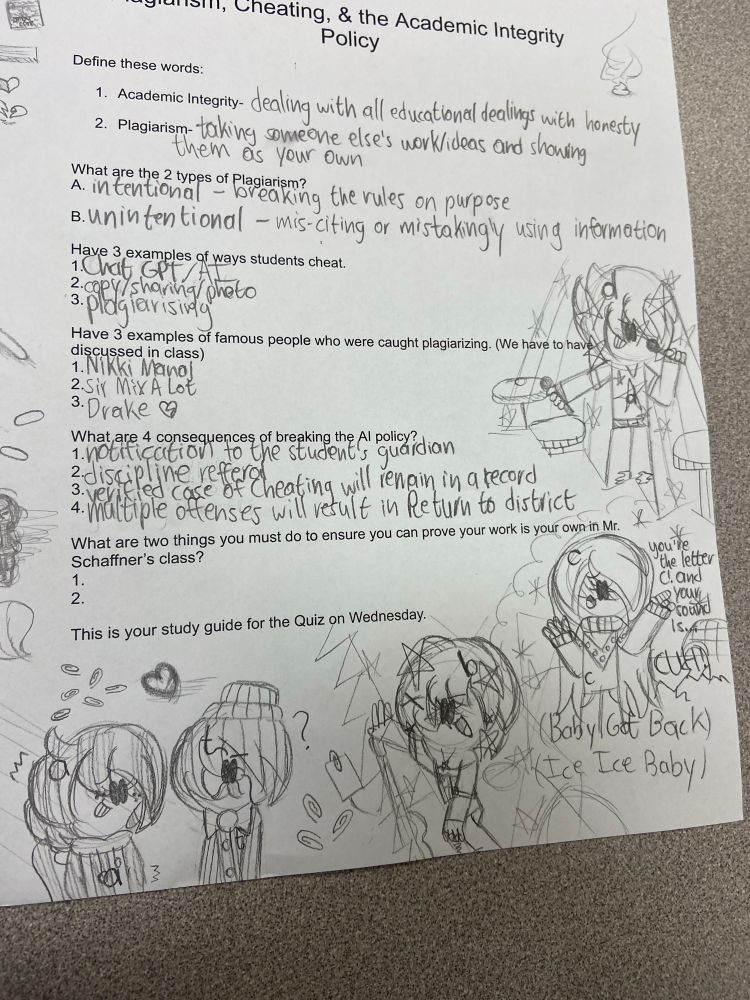 Plagiarism, Cheating, & the Academic Integrity
Policy
Define these words:
1. Academic Integrity- dealing with all educational dealings with honesty
2. Plagiarism- taking someone else's work/ideas and showing
them as your own
What are the 2 types of Plagiarism?
A. intentional – breaking the rules on purpose
B. unintentional – mis-citing or mistakingly using information
Have 3 examples of ways students cheat.
1. Chat GPT/AI
2. copy/sharing/photo
3. plagiarising
Have 3 examples of famous people who were caught plagiarizing. (We have to have
discussed in class)
1. Nikki Manaj
2. Sir Mix A Lot
3. Drake
What are 4 consequences of breaking the AI policy?
1. notification to the student's guardian
2. discipline refferal
3. verified case of cheating will remain in a record
4. multiple offenses will result in Return to district
What are two things you must do to ensure you can prove your work is your own in Mr.
Schaffner's class?
1.
2.
This is your study guide for the Quiz on Wednesday.
d
A
you're
the letter
C! and
your
sound
is...
C
C
(CUH!)
b
(Baby Got Back)
(Ice Ice Baby)
a
d
t
?